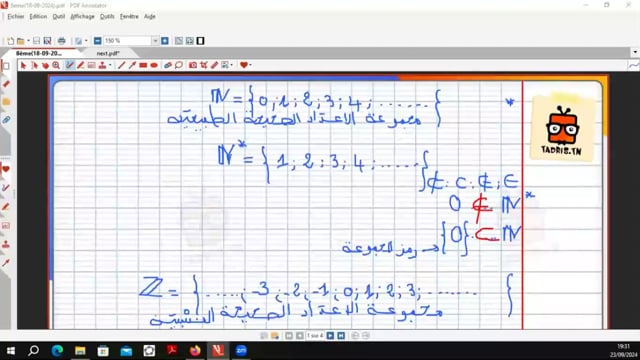 8ème(18-09-2024).pdf - PDF Annotator
Fichier Edition Outil Outils Fenêtre Aide
150 %
8ème(18-09-20... next.pdf*
ℕ = {0; 1; 2; 3; 4; .......} *
مجموعة الاعداد الصحيحة الطبيعية
TADRIS.TN
ℕ* = {1; 2; 3; 4; ......}
⊄ ; ⊂ ; ∉ ; ∈
0 ∉ ℕ*
{0} ⊂ ℕ
رمز المجموعة →
ℤ = {.....; -3; -2; -1; 0; 1; 2; 3; ........}
مجموعة الاعداد الصحيحة النسبية
1 sur 4
19:31
23/09/2024